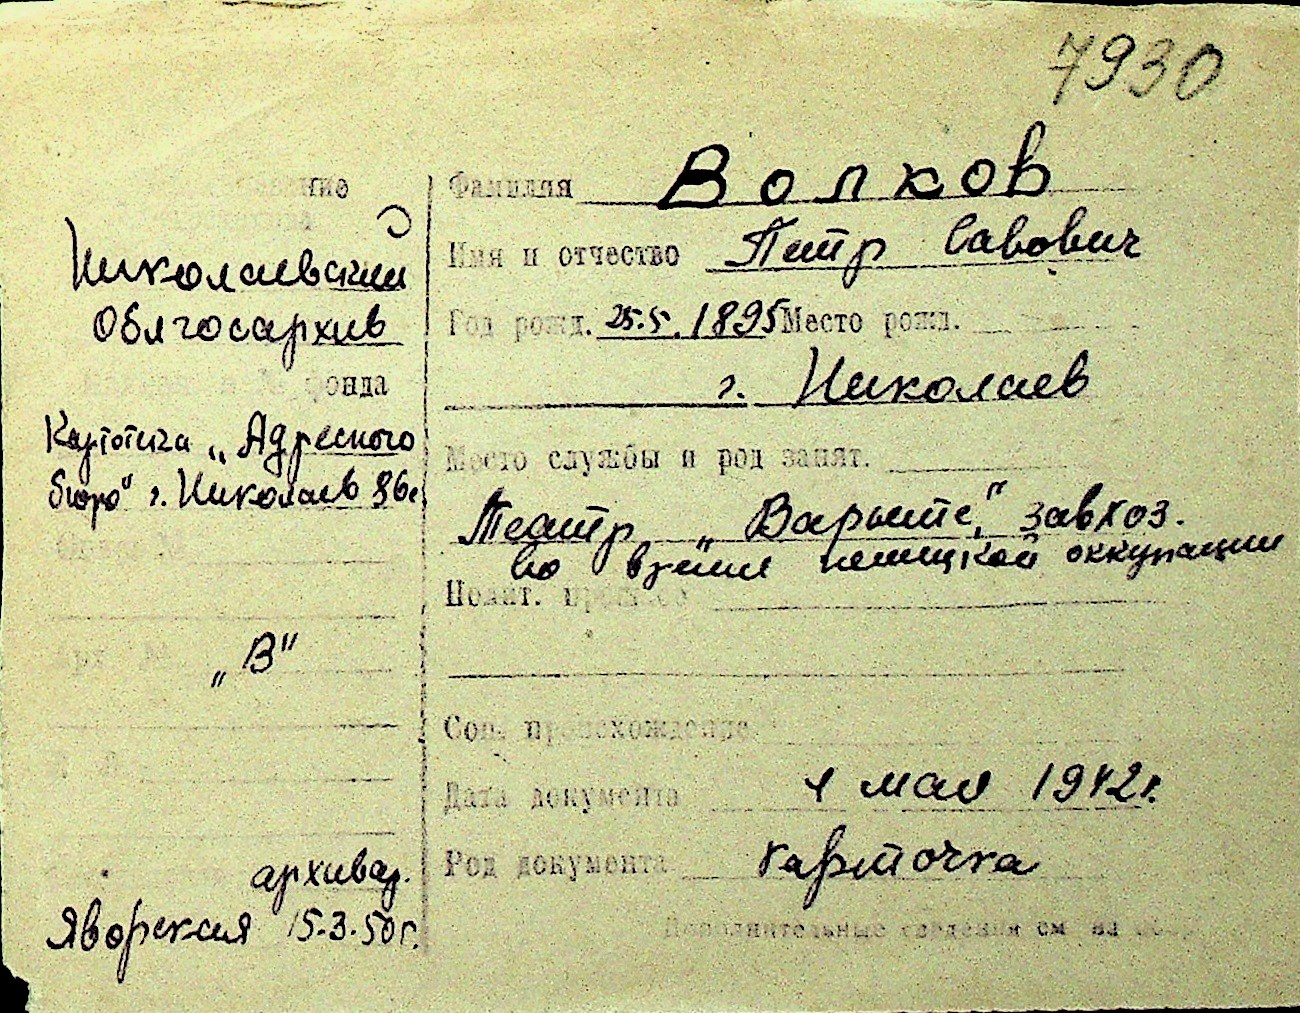 7930
Николаевский
Облгосархив
фонда
Картотека „Адресного
бюро" г. Николаев
„В"
архивар.
Яворская 15-3-50г.
Фамилия Волков
Имя и отчество Петр Савович
Год рожд. 25.5.1895 Место рожд.
г. Николаев
Место службы и род занят.
Театр „Варьете", завхоз.
во время немецкой оккупации
Полит.
Соц. происхождение
Дата документа 4 мая 1942г.
Род документа карточка
Дополнительные сведения см на